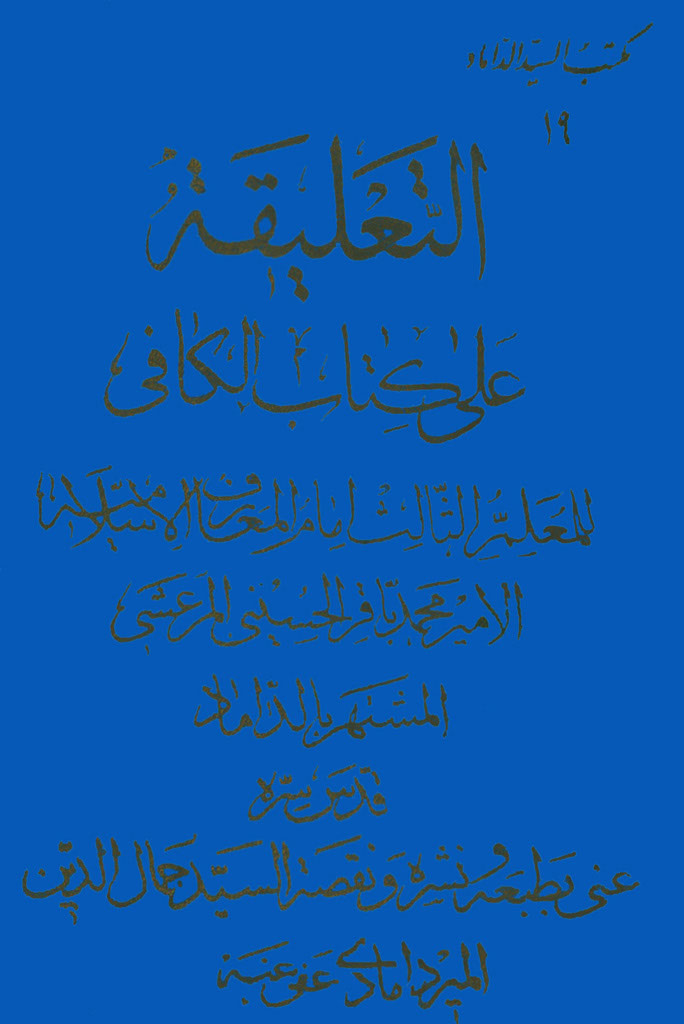 كتب السيد الداماد
١٩
التَّعْلِيقَةُ
عَلىٰ كِتٰابِ الكٰافى
للمُعَلِمِّ الثّالِث اِمامُ المَعارِفِ الاِسْلامِيَّة
الامير محمد باقر الحسيني المرعشى
المشتهر بالدّاماد
قدّس سِرّه
عنى بطبعه ونشره ونفقته السيّد جمال الدّين
الميردامادى عفى عنه